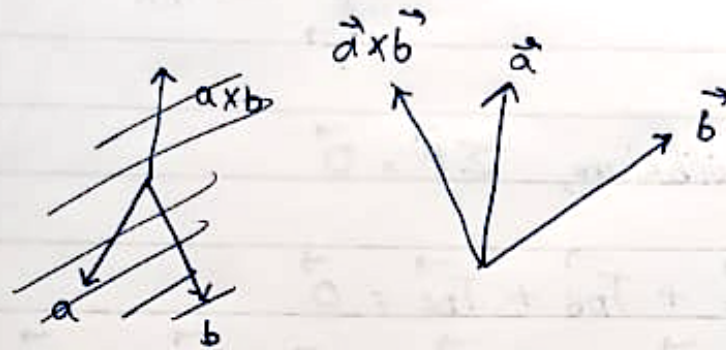 a⃗×b⃗
a⃗
b⃗
a×b
a
b